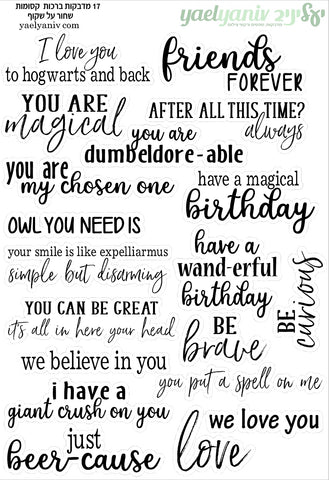 17 מדבקות ברכות קסומות
שחור על שקוף
yaelyaniv.com
yaelyaniv יעל יניב
I love you
to hogwarts and back
friends
FOREVER
YOU ARE
magical
AFTER ALL THIS TIME?
always
you are
dumbeldore-able
you are
my chosen one
have a magical
birthday
OWL YOU NEED IS
your smile is like expelliarmus
simple but disarming
have a
wand-erful
birthday
YOU CAN BE GREAT
it's all in here your head
BE
brave
BE
curious
we believe in you
you put a spell on me
i have a
giant crush on you
we love you
just
beer-cause
love